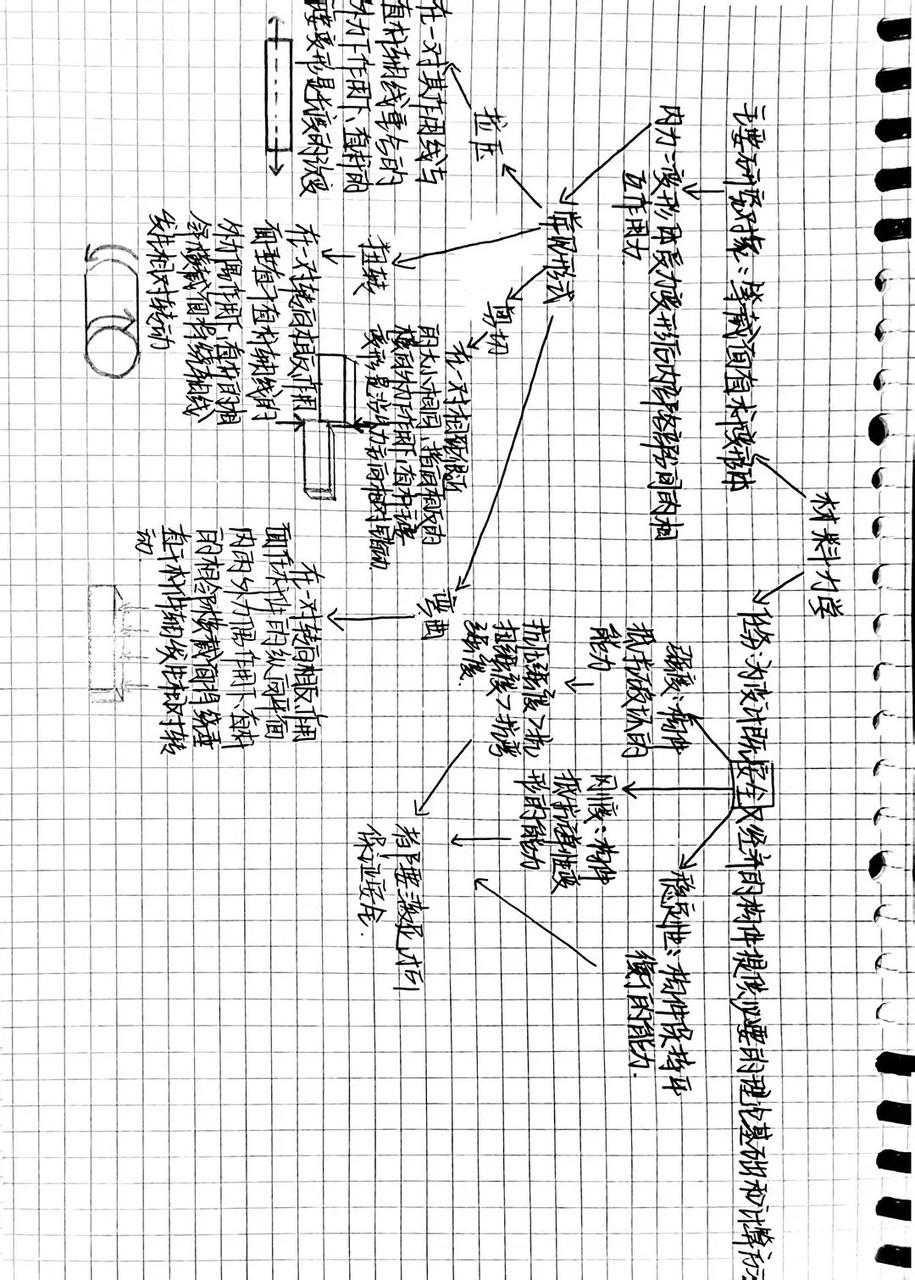 材料力学
主要研究对象：等截面直杆变形体
任务：为设计既安全又经济的构件提供必要的理论基础和计算方法
内力：变形固受力变形后内部各部分间的相
互作用力
强度：构件
抵抗破坏的
能力
刚度：构件
抵抗弹性变
形的能力
稳定性：构件保持平
衡的能力.
抗拉强度>抗
扭强度>抗弯
强度.
都要满足才可
保证安全.
常见形式
拉压
在一对其作用线与
直杆轴线重合的
外力作用下，直杆的
主要变形是长度的改变
扭转
在一对转向相反、作用
面垂直于直杆轴线的
外力偶作用下，直杆的相
邻横截面将绕轴线
发生相对转动
剪切
在一对相距很近
的大小相同、指向相反的
横向外力作用下，直杆主要
变形是沿外力方向相对错动.
弯曲
在一对转向相反、作用
面在杆件的纵向平面
内的外力偶作用下，直杆
的相邻横截面将绕垂
直于杆件轴线发生相对转
动.